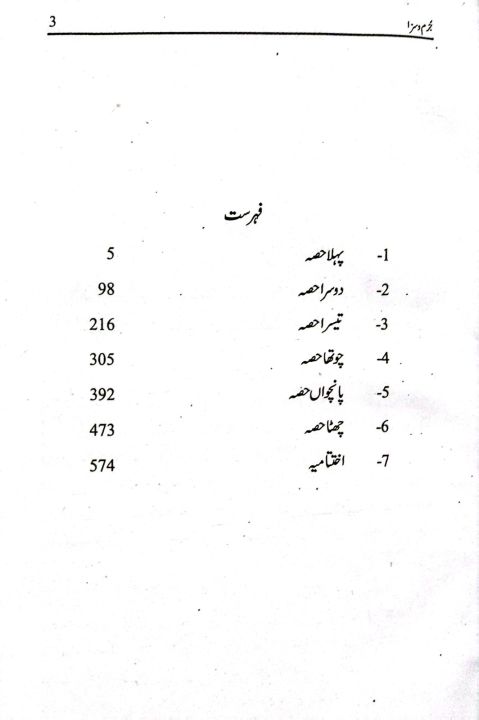 جُرم و سزا 3
فہرست
1- پہلا حصہ 5
2- دوسرا حصہ 98
3- تیسرا حصہ 216
4- چوتھا حصہ 305
5- پانچواں حصہ 392
6- چھٹا حصہ 473
7- اختتامیہ 574